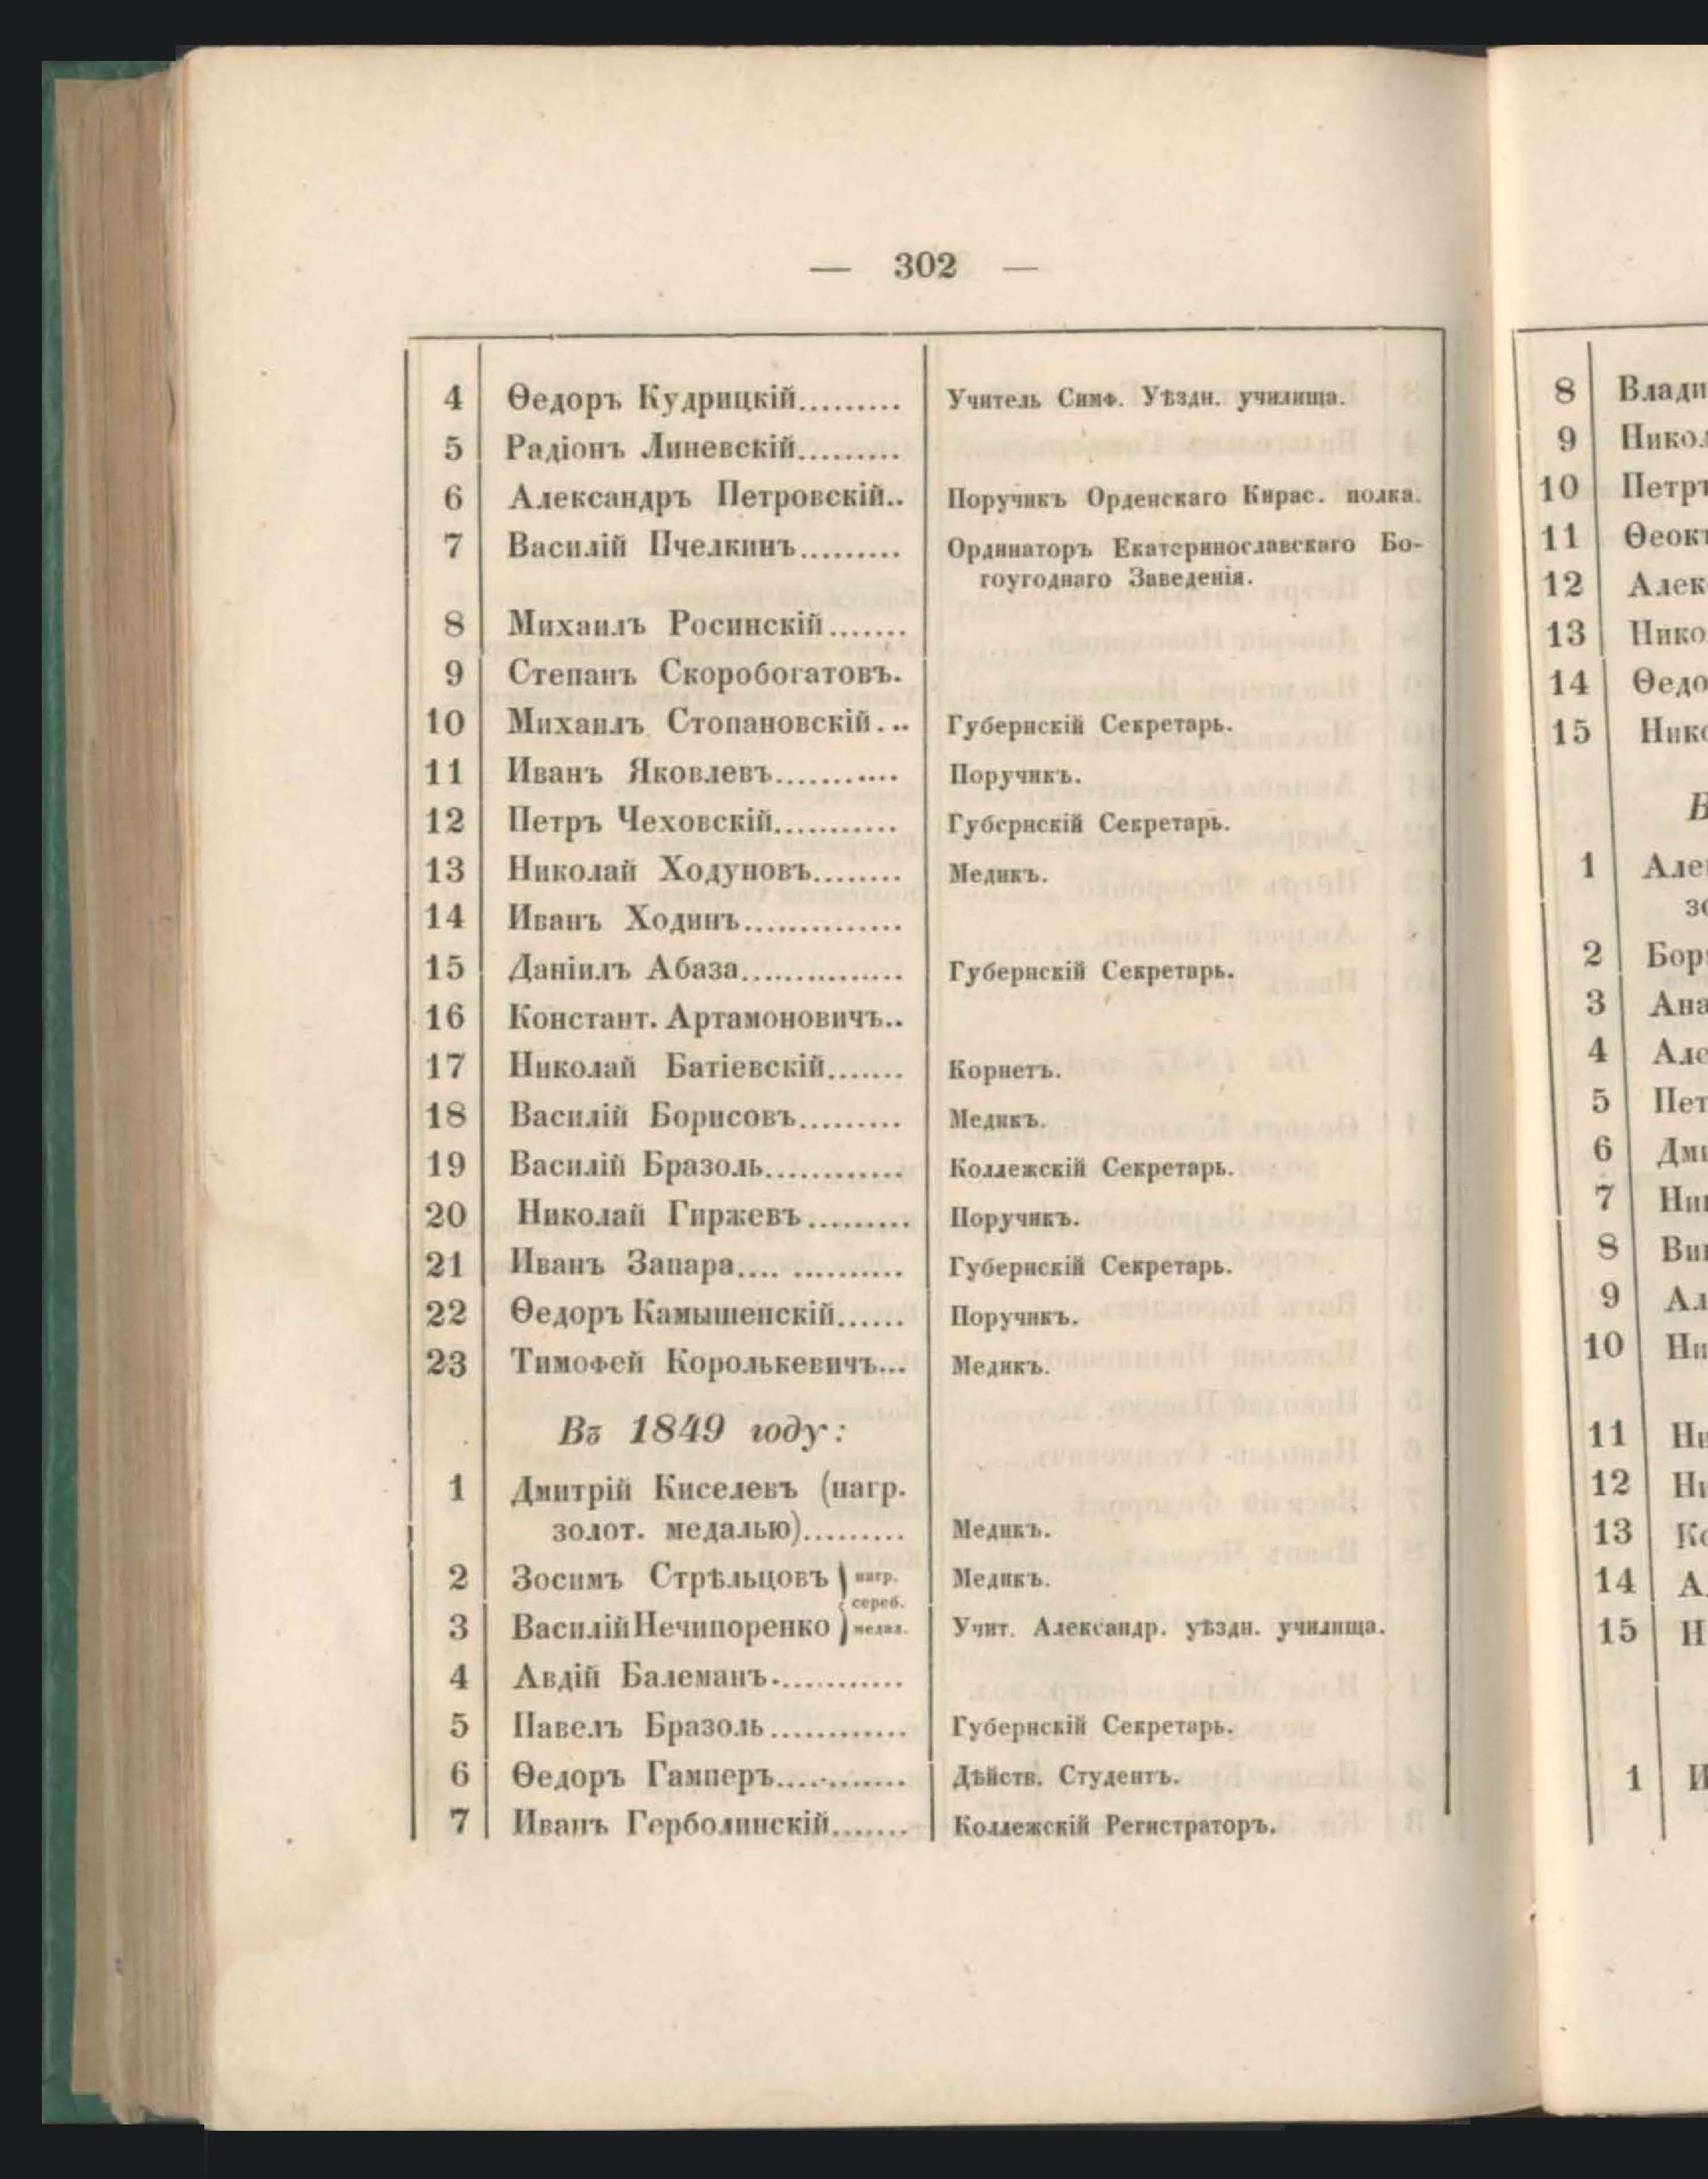 — 302 —
4 Ѳедоръ Кудрицкій......... Учитель Симф. Уѣздн. училища.
5 Радіонъ Линевскій.........
6 Александръ Петровскій.. Поручикъ Орденскаго Кирас. полка.
7 Василій Пчелкинъ......... Ординаторъ Екатеринославскаго Бо-
гоугоднаго Заведенія.
8 Михаилъ Росинскій.......
9 Степанъ Скоробогатовъ.
10 Михаилъ Стопановскій... Губернскій Секретарь.
11 Иванъ Яковлевъ........... Поручикъ.
12 Петръ Чеховскій........... Губернскій Секретарь.
13 Николай Ходуновъ........ Медикъ.
14 Иванъ Ходинъ..............
15 Даніилъ Абаза............... Губернскій Секретарь.
16 Констант. Артамоновичъ..
17 Николай Батіевскій....... Корнетъ.
18 Василій Борисовъ......... Медикъ.
19 Василій Бразоль............ Коллежскій Секретарь.
20 Николай Гиржевъ......... Поручикъ.
21 Иванъ Запара.... .......... Губернскій Секретарь.
22 Ѳедоръ Камышенскій...... Поручикъ.
23 Тимофей Королькевичъ... Медикъ.
Въ 1849 году:
1 Дмитрій Киселевъ (нагр.
золот. медалью)......... Медикъ.
2 Зосимъ Стрѣльцовъ } нагр. Медикъ.
сереб.
3 Василій Нечипоренко } медал. Учит. Александр. уѣздн. училища.
4 Авдій Балеманъ............
5 Павелъ Бразоль............ Губернскій Секретарь.
6 Ѳедоръ Гамперъ............ Дѣйств. Студентъ.
7 Иванъ Герболинскій....... Коллежскій Регистраторъ.
8 Влади
9 Никол
10 Петръ
11 Ѳеок
12 Алек
13 Нико
14 Ѳедо
15 Нико
В
1 Але
зо
2 Бор
3 Ана
4 Але
5 Пет
6 Дми
7 Ни
8 Ви
9 Ал
10 Ни
11 Ни
12 Ни
13 Ко
14 А
15 Н
1 И